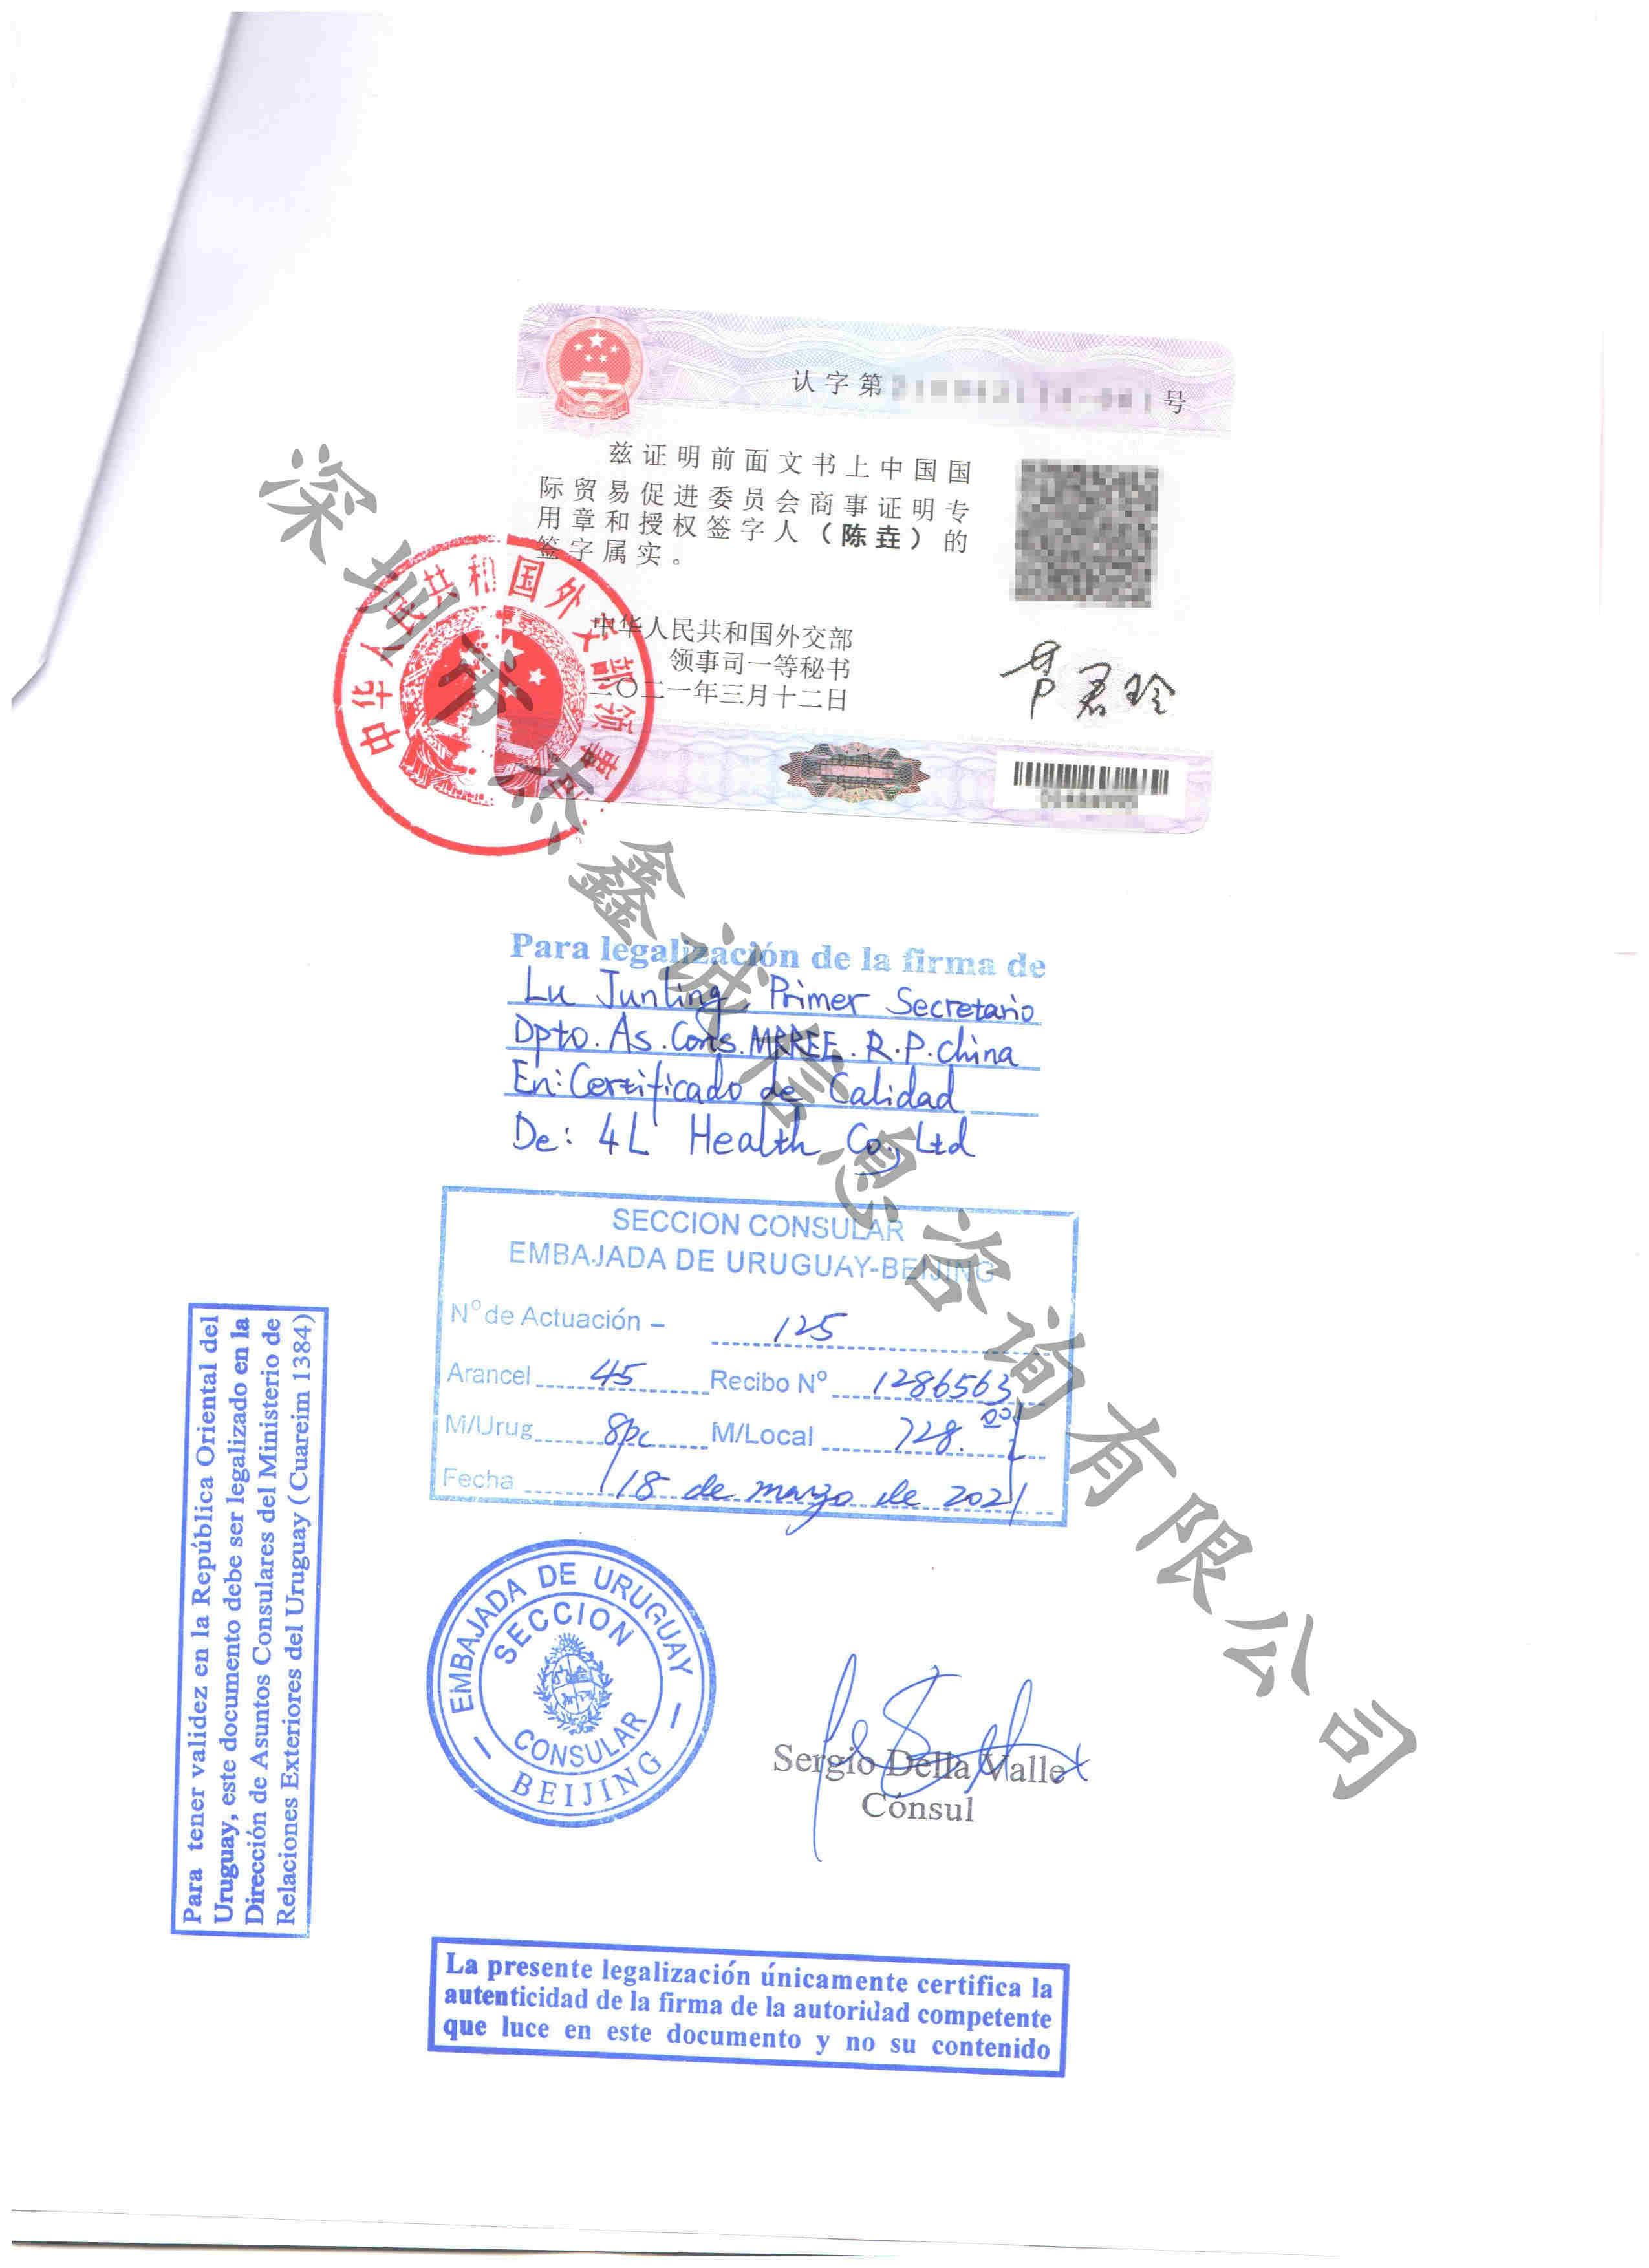 认字第
号
兹证明前面文书上中国国
际贸易促进委员会商事证明专
用章和授权签字人（陈垚）的
签字属实。
中华人民共和国外交部
领事司一等秘书
二〇二一年三月十二日
中华人民共和国外交部领事司
深圳市杰鑫诚信息咨询有限公司
Para legalización de la firma de
Lu Junling, Primer Secretario
Dpto. As. Cons. MRREE. R.P. China
En: Certificado de Calidad
De: 4L Health Co., Ltd
SECCION CONSULAR
EMBAJADA DE URUGUAY-BEIJING
N° de Actuación – 125
Arancel 45 Recibo N° 1286563
M/Urug 8pc M/Local 728.00
Fecha 18 de marzo de 2021
EMBAJADA DE URUGUAY
SECCION
CONSULAR
BEIJING
Sergio Della Valle
Cónsul
Para tener validez en la República Oriental del
Uruguay, este documento debe ser legalizado en la
Dirección de Asuntos Consulares del Ministerio de
Relaciones Exteriores del Uruguay (Cuareim 1384)
La presente legalización únicamente certifica la
autenticidad de la firma de la autoridad competente
que luce en este documento y no su contenido